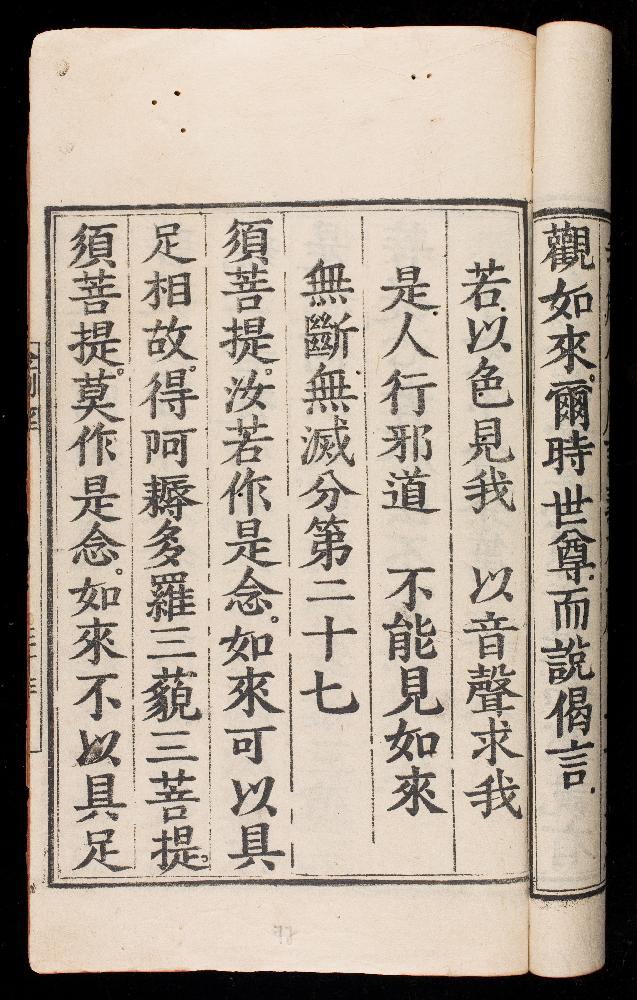 觀如來。爾時世尊。而說偈言。
若以色見我　以音聲求我
是人行邪道　不能見如來
無斷無滅分第二十七
須菩提。汝若作是念。如來可以具
足相故。得阿耨多羅三藐三菩提。
須菩提。莫作是念。如來不以具足